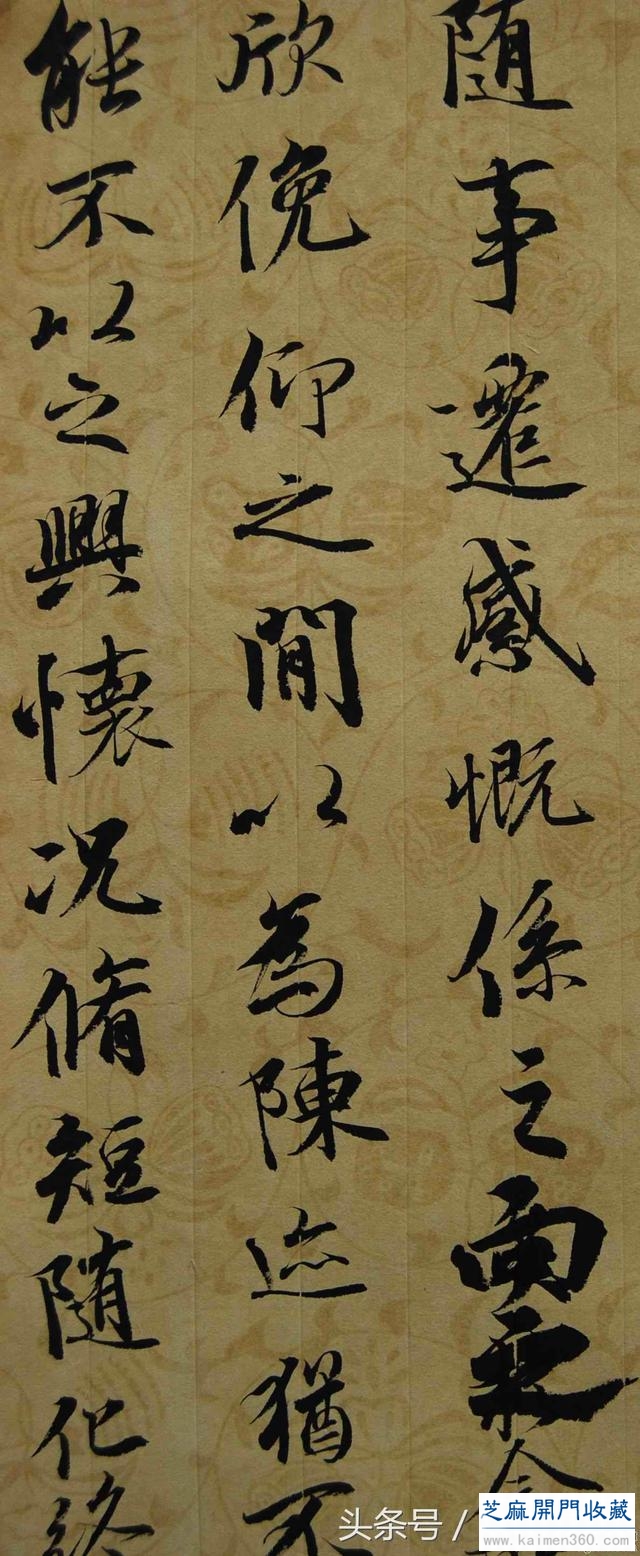 随事遷感慨係之
欣俛仰之閒以為陳迹猶不
能不以之興懷况脩短随化終
头条号/
芝麻開門收藏
www.kaimen360.com